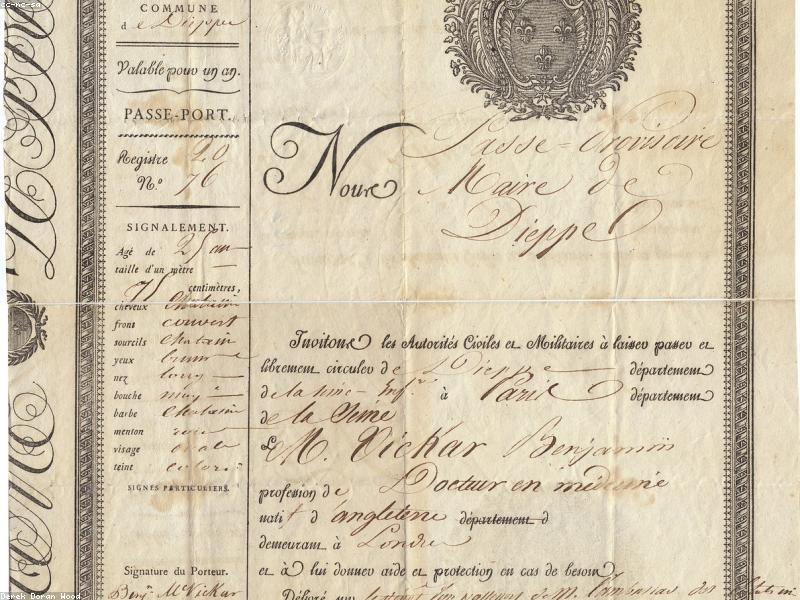 cc-nc-sa
COMMUNE
de Dieppe
Valable pour un an.
PASSE-PORT.
Registre 20
N.o 76
SIGNALEMENT.
Agé de 25 ans
taille d'un mètre
75 centimètres,
cheveux Chatain
front couvert
sourcils Chatain
yeux bruns
nez long
bouche moye
barbe Chatain
menton rond
visage ovale
teint coloré
SIGNES PARTICULIERS.
Signature du Porteur.
Benjn McVickar
Passe-Provisoire
Nous Maire de
Dieppe
Invitons les Autorités Civiles et Militaires à laisser passer et
librement circuler de Dieppe département
de la Seine Infre à Paris département
de la Seine
Le M. Vickar Benjamin
profession de Docteur en médecine
natif d'angleterre département d
demeurant à Londre
et à lui donner aide et protection en cas de besoin
Délivré sur de M. l'ambassad. des
Derek Doran Wood